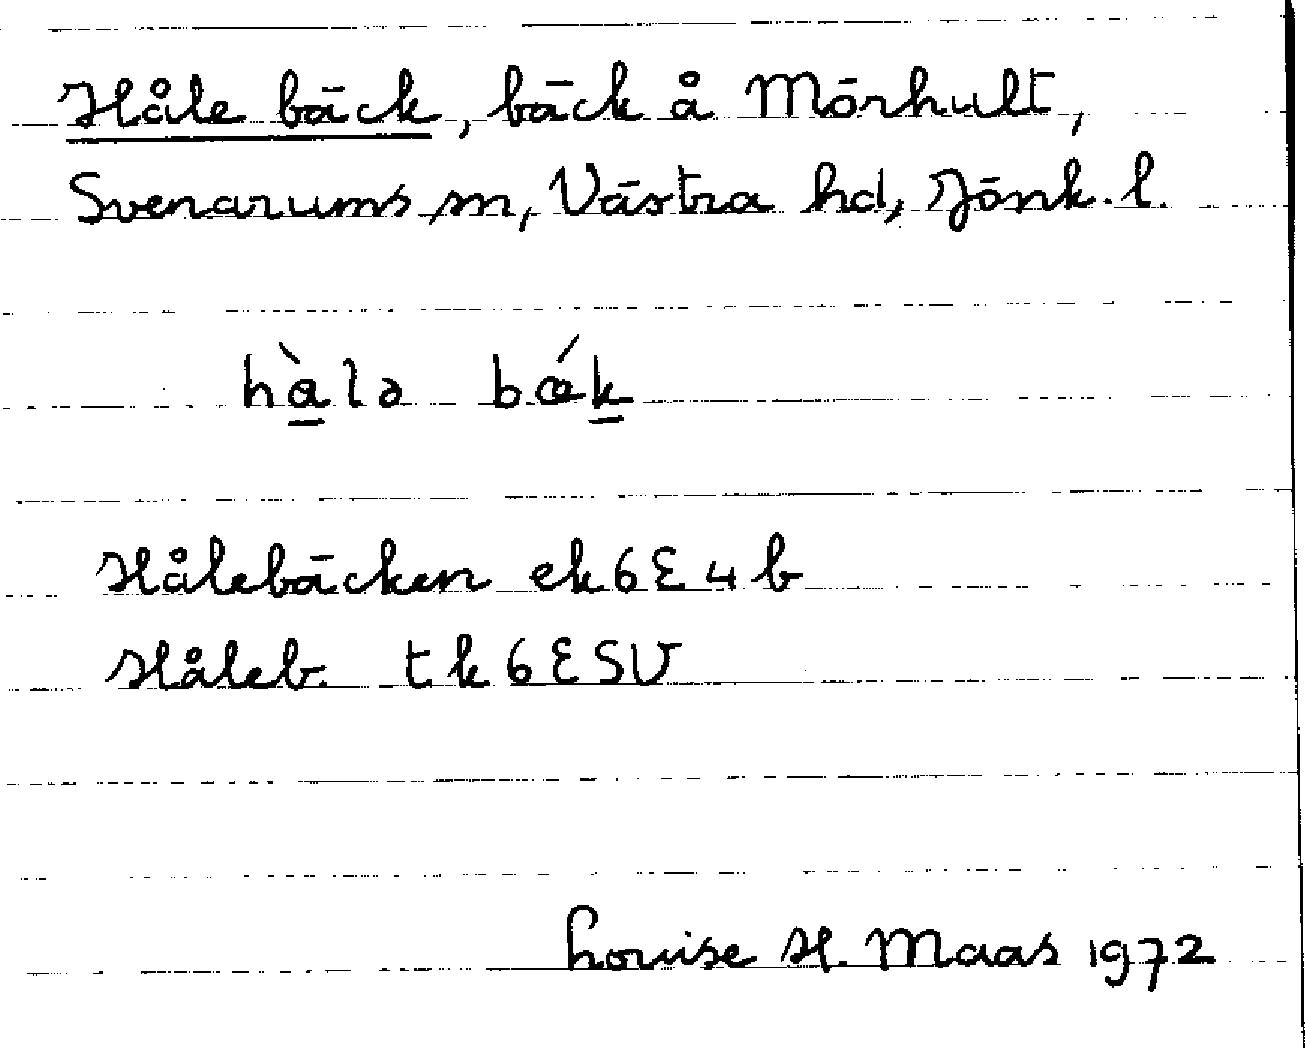 Håle bäck, bäck å Mörhult,
Svenarums sn, Västra hd, Jönk. l.
hàlə bǽk
Hålebäcken ek 6E4b
Håleb. tk 6ESV
Louise H. Maas 1972